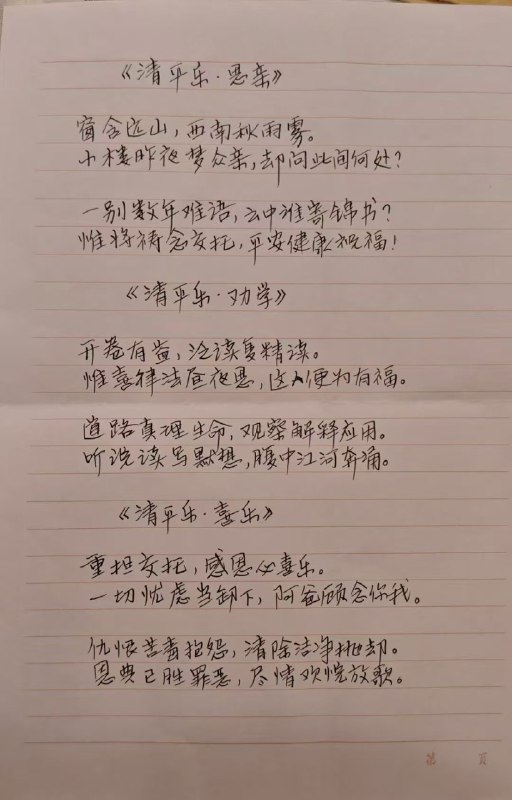 《清平乐·思亲》
窗含远山，西南秋雨雾。
小楼昨夜梦众亲，却问此间何处？
一别数年难语，云中谁寄锦书？
惟将祷念交托，平安健康祝福！
《清平乐·劝学》
开卷有益，泛读复精读。
惟喜律法昼夜思，这人便为有福。
道路真理生命，观察解释应用。
听说读写默想，腹中江河奔涌。
《清平乐·喜乐》
重担交托，感恩心喜乐。
一切忧虑当卸下，阿爸顾念你我。
仇恨苦毒抱怨，清除洁净抛却。
恩典已胜罪恶，尽情欢悦放歌。
第 页